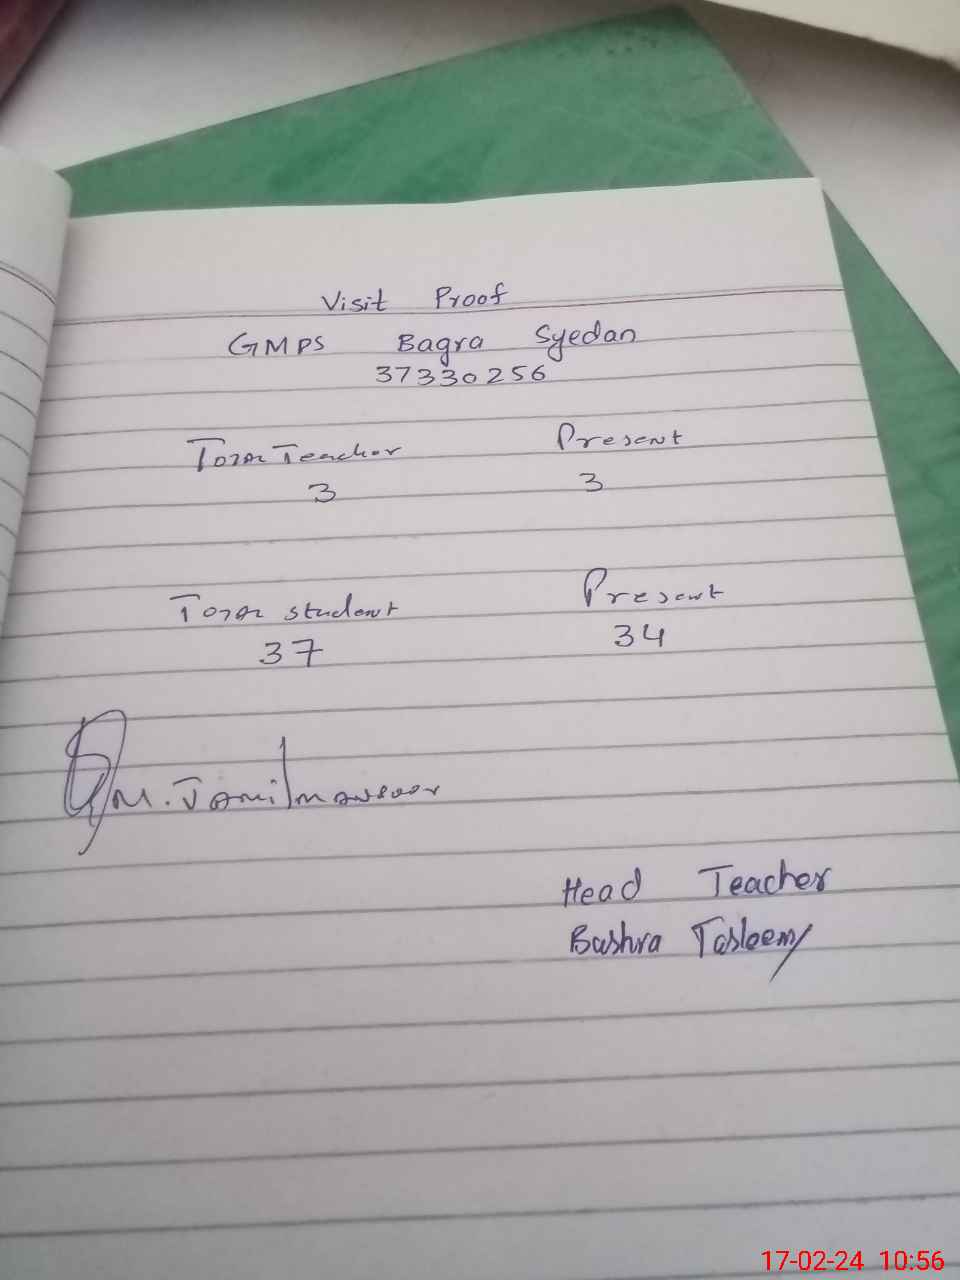 Visit Proof
GMPS Bagra Syedan
37330256
Total Teacher Present
3 3
Total student Present
37 34
M. Jamil mansoor
Head Teacher
Bushra Tasleem
17-02-24 10:56